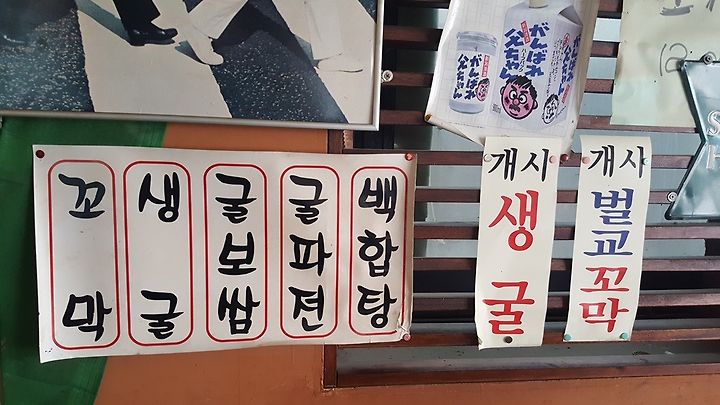 꼬막
생굴
굴보쌈
굴파젼
백합탕
개시
생굴
개사
벌교꼬막
がんばれ
父ちゃん
がんばれ
父ちゃん